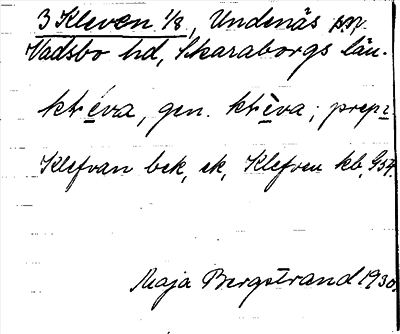 3 Kleven 1/8, Undenäs sn.
Vadsbo hd, Skaraborgs län.
klèva, gen. klèva; prep i.
Klefvan bek, ek, Klefven kb, G54.
Maja Bergstrand 1930.